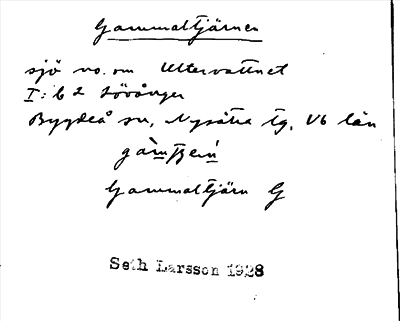 Gammaltjärnen
sjö no. om Uttervattnet
I:62 Lövånger
Bygdeå sn, Nysätra tg, Vb län
Gammaltjärn G
Seth Larsson 1928